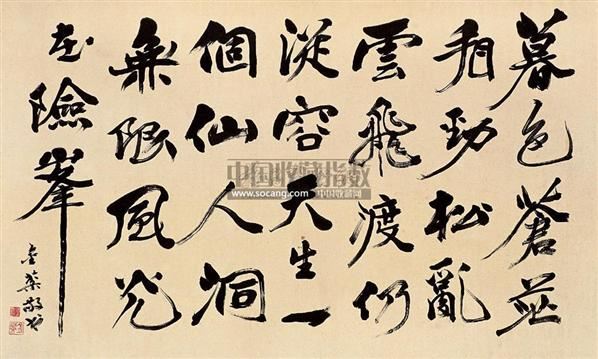 暮色蒼茫
看勁松亂
雲飛渡仍
從容天生一
個仙人洞
無限風光
在險峯
中国收藏指数
www.socang.com 中国收藏网